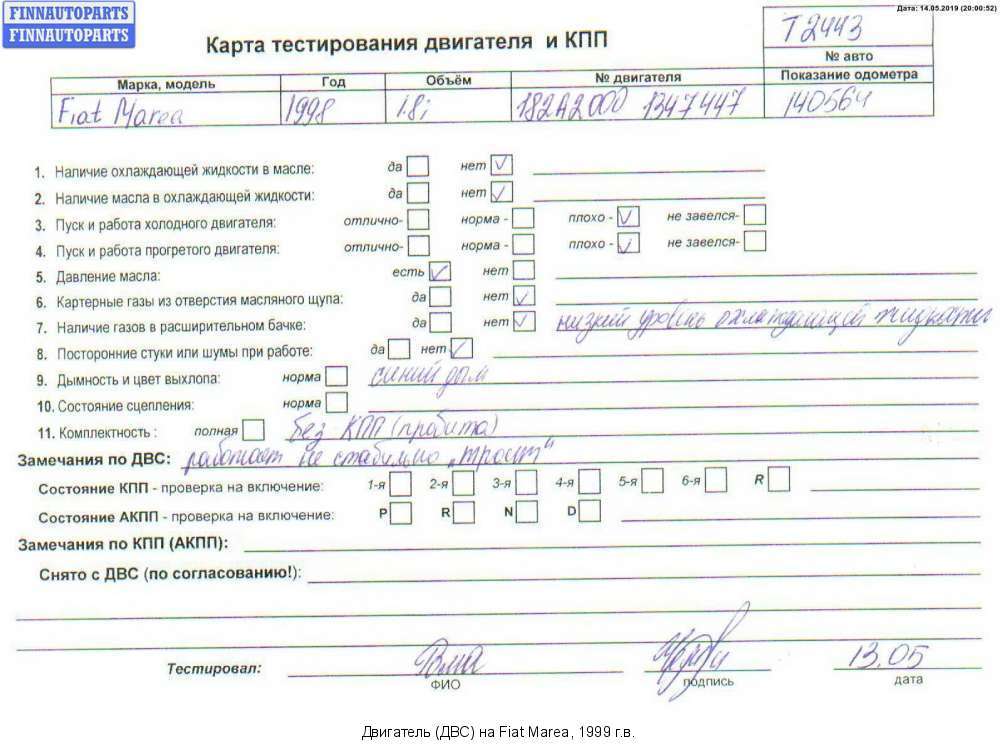 FINNAUTOPARTS
FINNAUTOPARTS
Дата: 14.05.2019 (20:00:52)
Карта тестирования двигателя и КПП
T2443
№ авто
Марка, модель Год Объём № двигателя Показание одометра
Fiat Marea 1998 1.8i 182A2000 1347447 140564
1. Наличие охлаждающей жидкости в масле: да нет ✓
2. Наличие масла в охлаждающей жидкости: да нет ✓
3. Пуск и работа холодного двигателя: отлично- норма - плохо - ✓ не завелся-
4. Пуск и работа прогретого двигателя: отлично- норма - плохо - ✓ не завелся-
5. Давление масла: есть ✓ нет
6. Картерные газы из отверстия масляного щупа: да нет ✓
7. Наличие газов в расширительном бачке: да нет ✓ низкий уровень охлаждающей жидкости
8. Посторонние стуки или шумы при работе: да нет ✓
9. Дымность и цвет выхлопа: норма синий дым
10. Состояние сцепления: норма
11. Комплектность : полная без КПП (пробита)
Замечания по ДВС: работает не стабильно „троит"
Состояние КПП - проверка на включение: 1-я 2-я 3-я 4-я 5-я 6-я R
Состояние АКПП - проверка на включение: P R N D
Замечания по КПП (АКПП):
Снято с ДВС (по согласованию!):
Тестировал: 13.05
ФИО подпись дата
Двигатель (ДВС) на Fiat Marea, 1999 г.в.